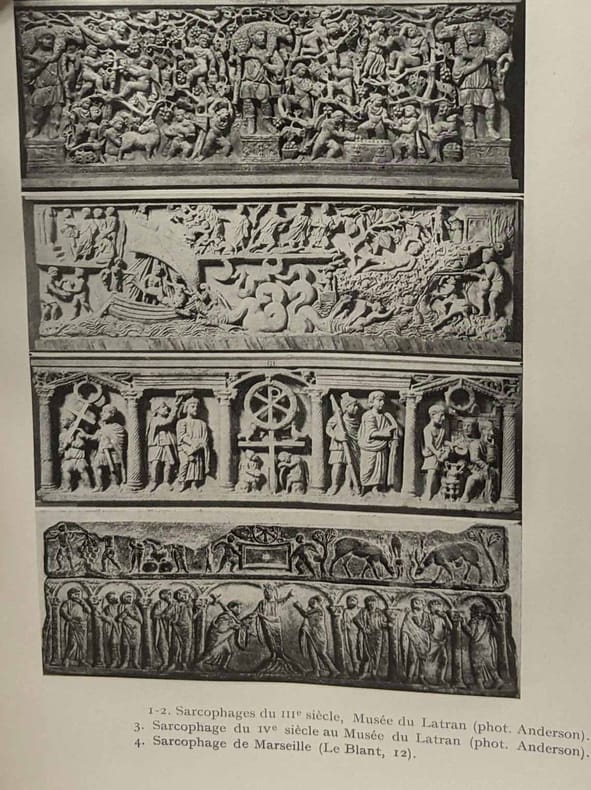 1-2. Sarcophages du IIIe siècle, Musée du Latran (phot. Anderson).
3. Sarcophage du IVe siècle au Musée du Latran (phot. Anderson).
4. Sarcophage de Marseille (Le Blant, 12).